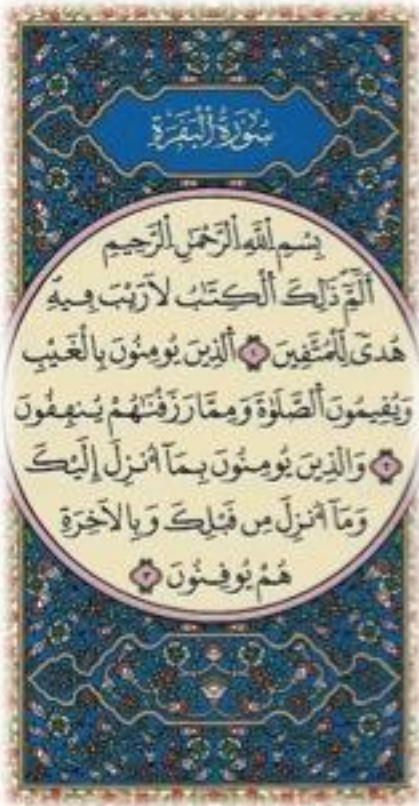 سُورَةُ الْبَقَرَةِ
بِسْمِ اللَّهِ الرَّحْمَٰنِ الرَّحِيمِ
أَلَٓمِّٓ ذَٰلِكَ ٱلْكِتَٰبُ لَا رَيْبَ ڢِيهِ
هُدىٗ لِّلْمُتَّفِينَ ١ ٱلذِينَ يُومِنُونَ بِالْغَيْبِ
وَيُفِيمُونَ ٱلصَّلَوٰةَ وَمِمَّا رَزَفْنَٰهُمْ يُنڢِفُونَ
٢ وَالذِينَ يُومِنُونَ بِمَآ أُنزِلَ إِلَيْكَ
وَمَآ أُنزِلَ مِن فَبْلِكَ وَبِالَاخِرَةِ
هُمْ يُوفِنُونَ ٣